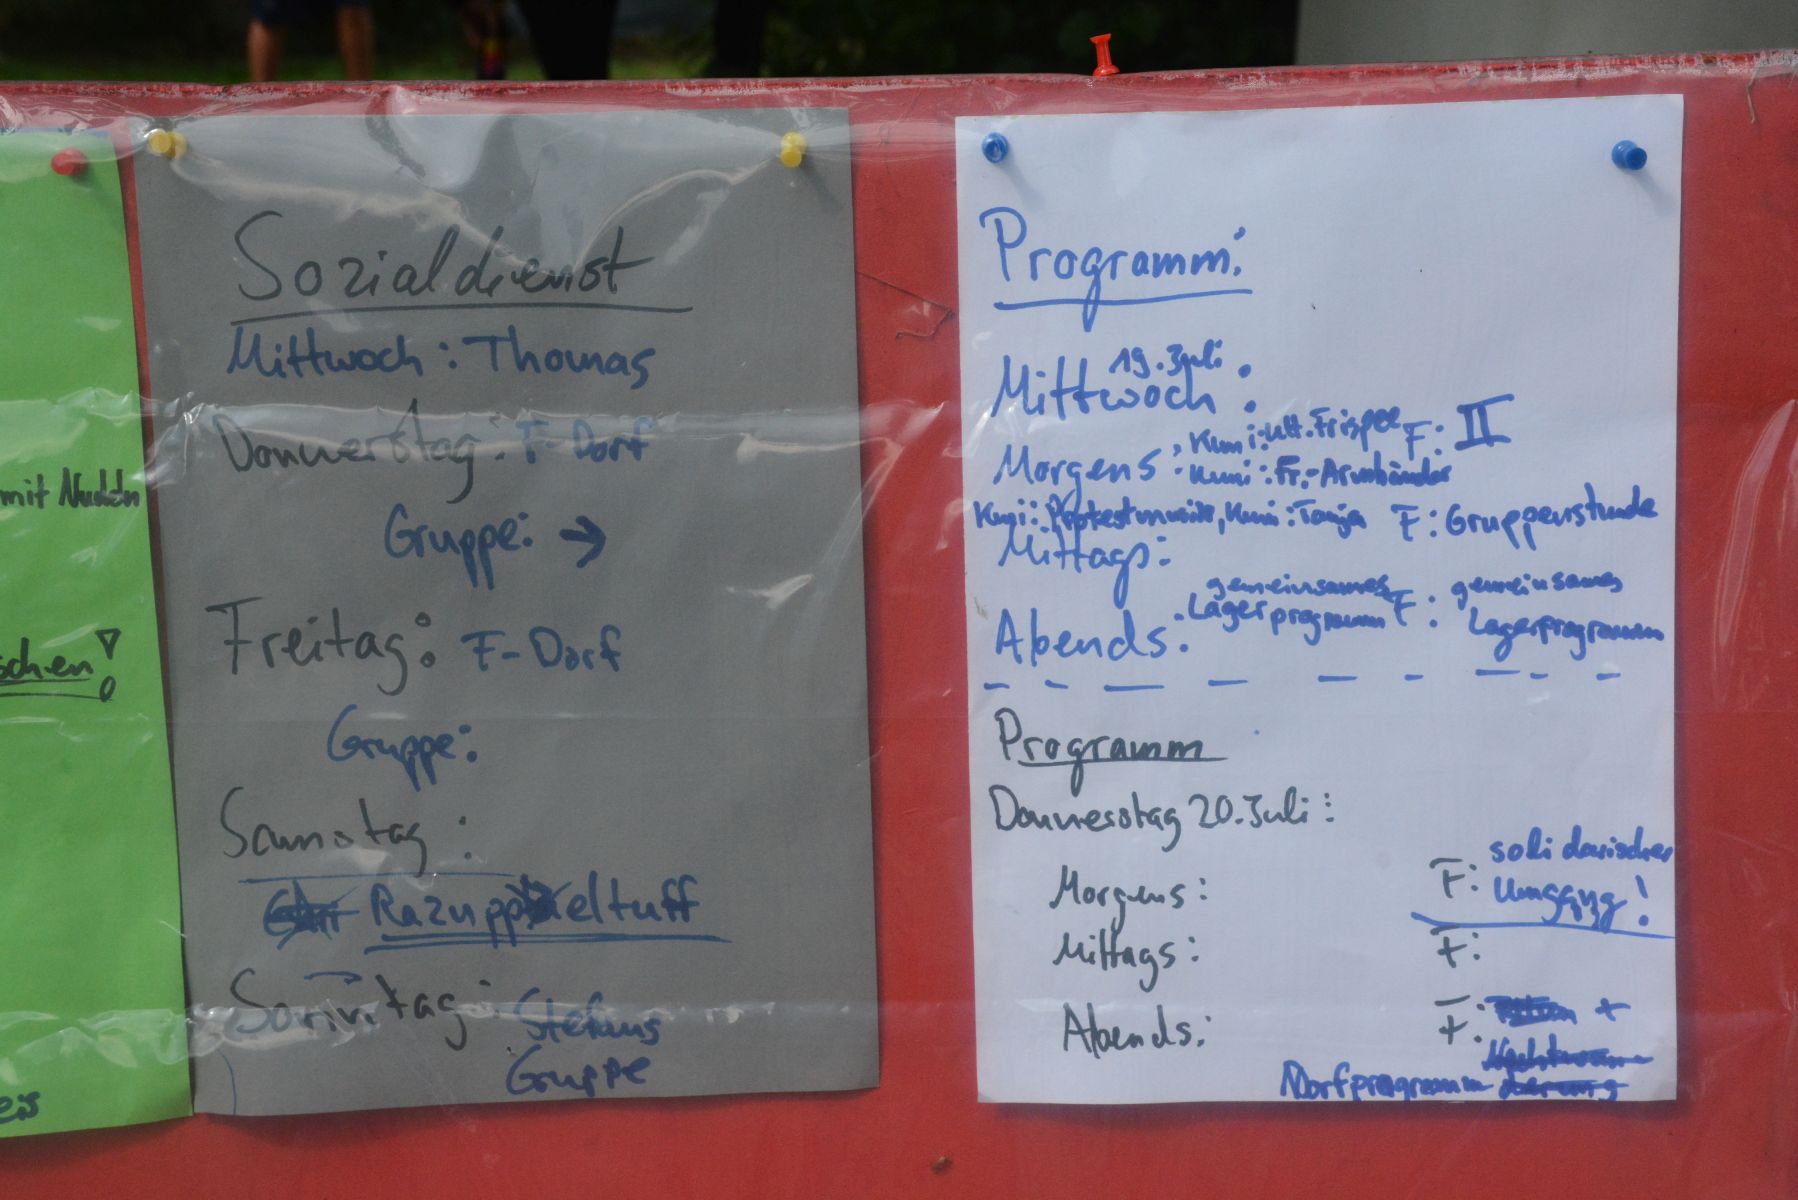 mit Nudeln
schen!
eis
Sozialdienst
Mittwoch: Thomas
Donnerstag: F-Dorf
Gruppe: →
Freitag: F-Dorf
Gruppe:
Samstag:
Razupp eltuff
Sonntag: Stefans
Gruppe
Programm:
Mittwoch 19. Juli:
Kuni: Ult. Frispee F: II
Morgens: Kuni: Fr.-Armbänder
Kuni: Protestmusik, Kuni: Tanja F: Gruppenstunde
Mittags:
gemeinsames F: gemeinsames
Abends: Lagerprogramm Lagerprogramm
Programm
Donnerstag 20. Juli:
Morgens: F: solidarischer
Umgang!
Mittags: F:
Abends: F: +
Dorfprogramm